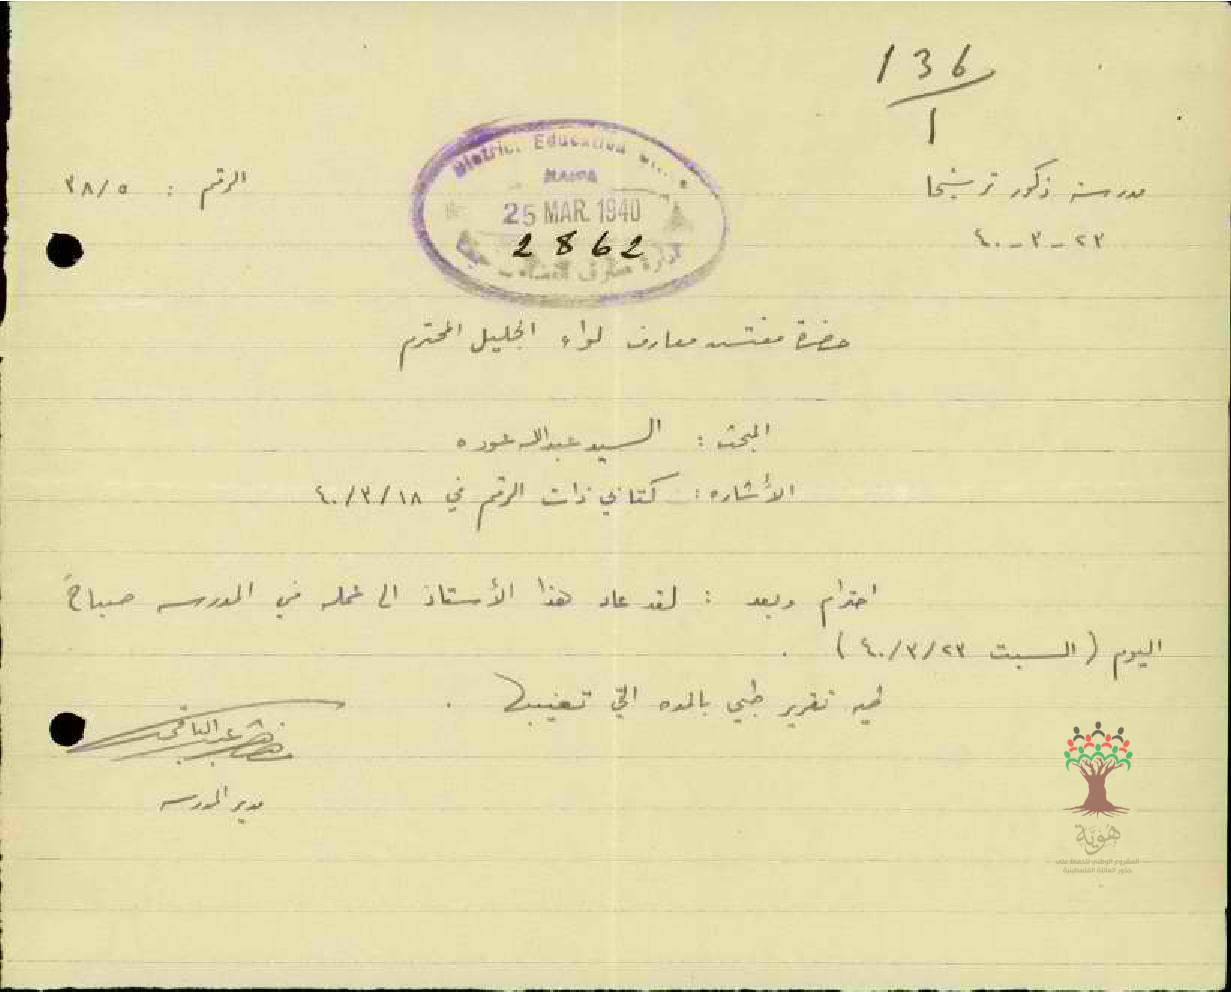 136
1
مدرسة ذكور ترشيحا
الرقم : ٣٨/٥
٢٣-٣-٤٠
District Education
HAIFA
25 MAR. 1940
2862
ادارة معارف
حضرة مفتش معارف لواء الجليل المحترم
المبحث : السيد عبدالله عوده
الأشاره : كتابي ذات الرقم في ١٨/٣/٤٠
احترام وبعد : لقد عاد هذا الأستاذ الى عمله في المدرسه صباح
اليوم (السبت ٢٣/٣/٤٠) .
طيه تقرير طبي بالمده التي تغيبها .
مدير المدرسه
هوية
المشروع الوطني للحفاظ على
جذور العائلة الفلسطينية